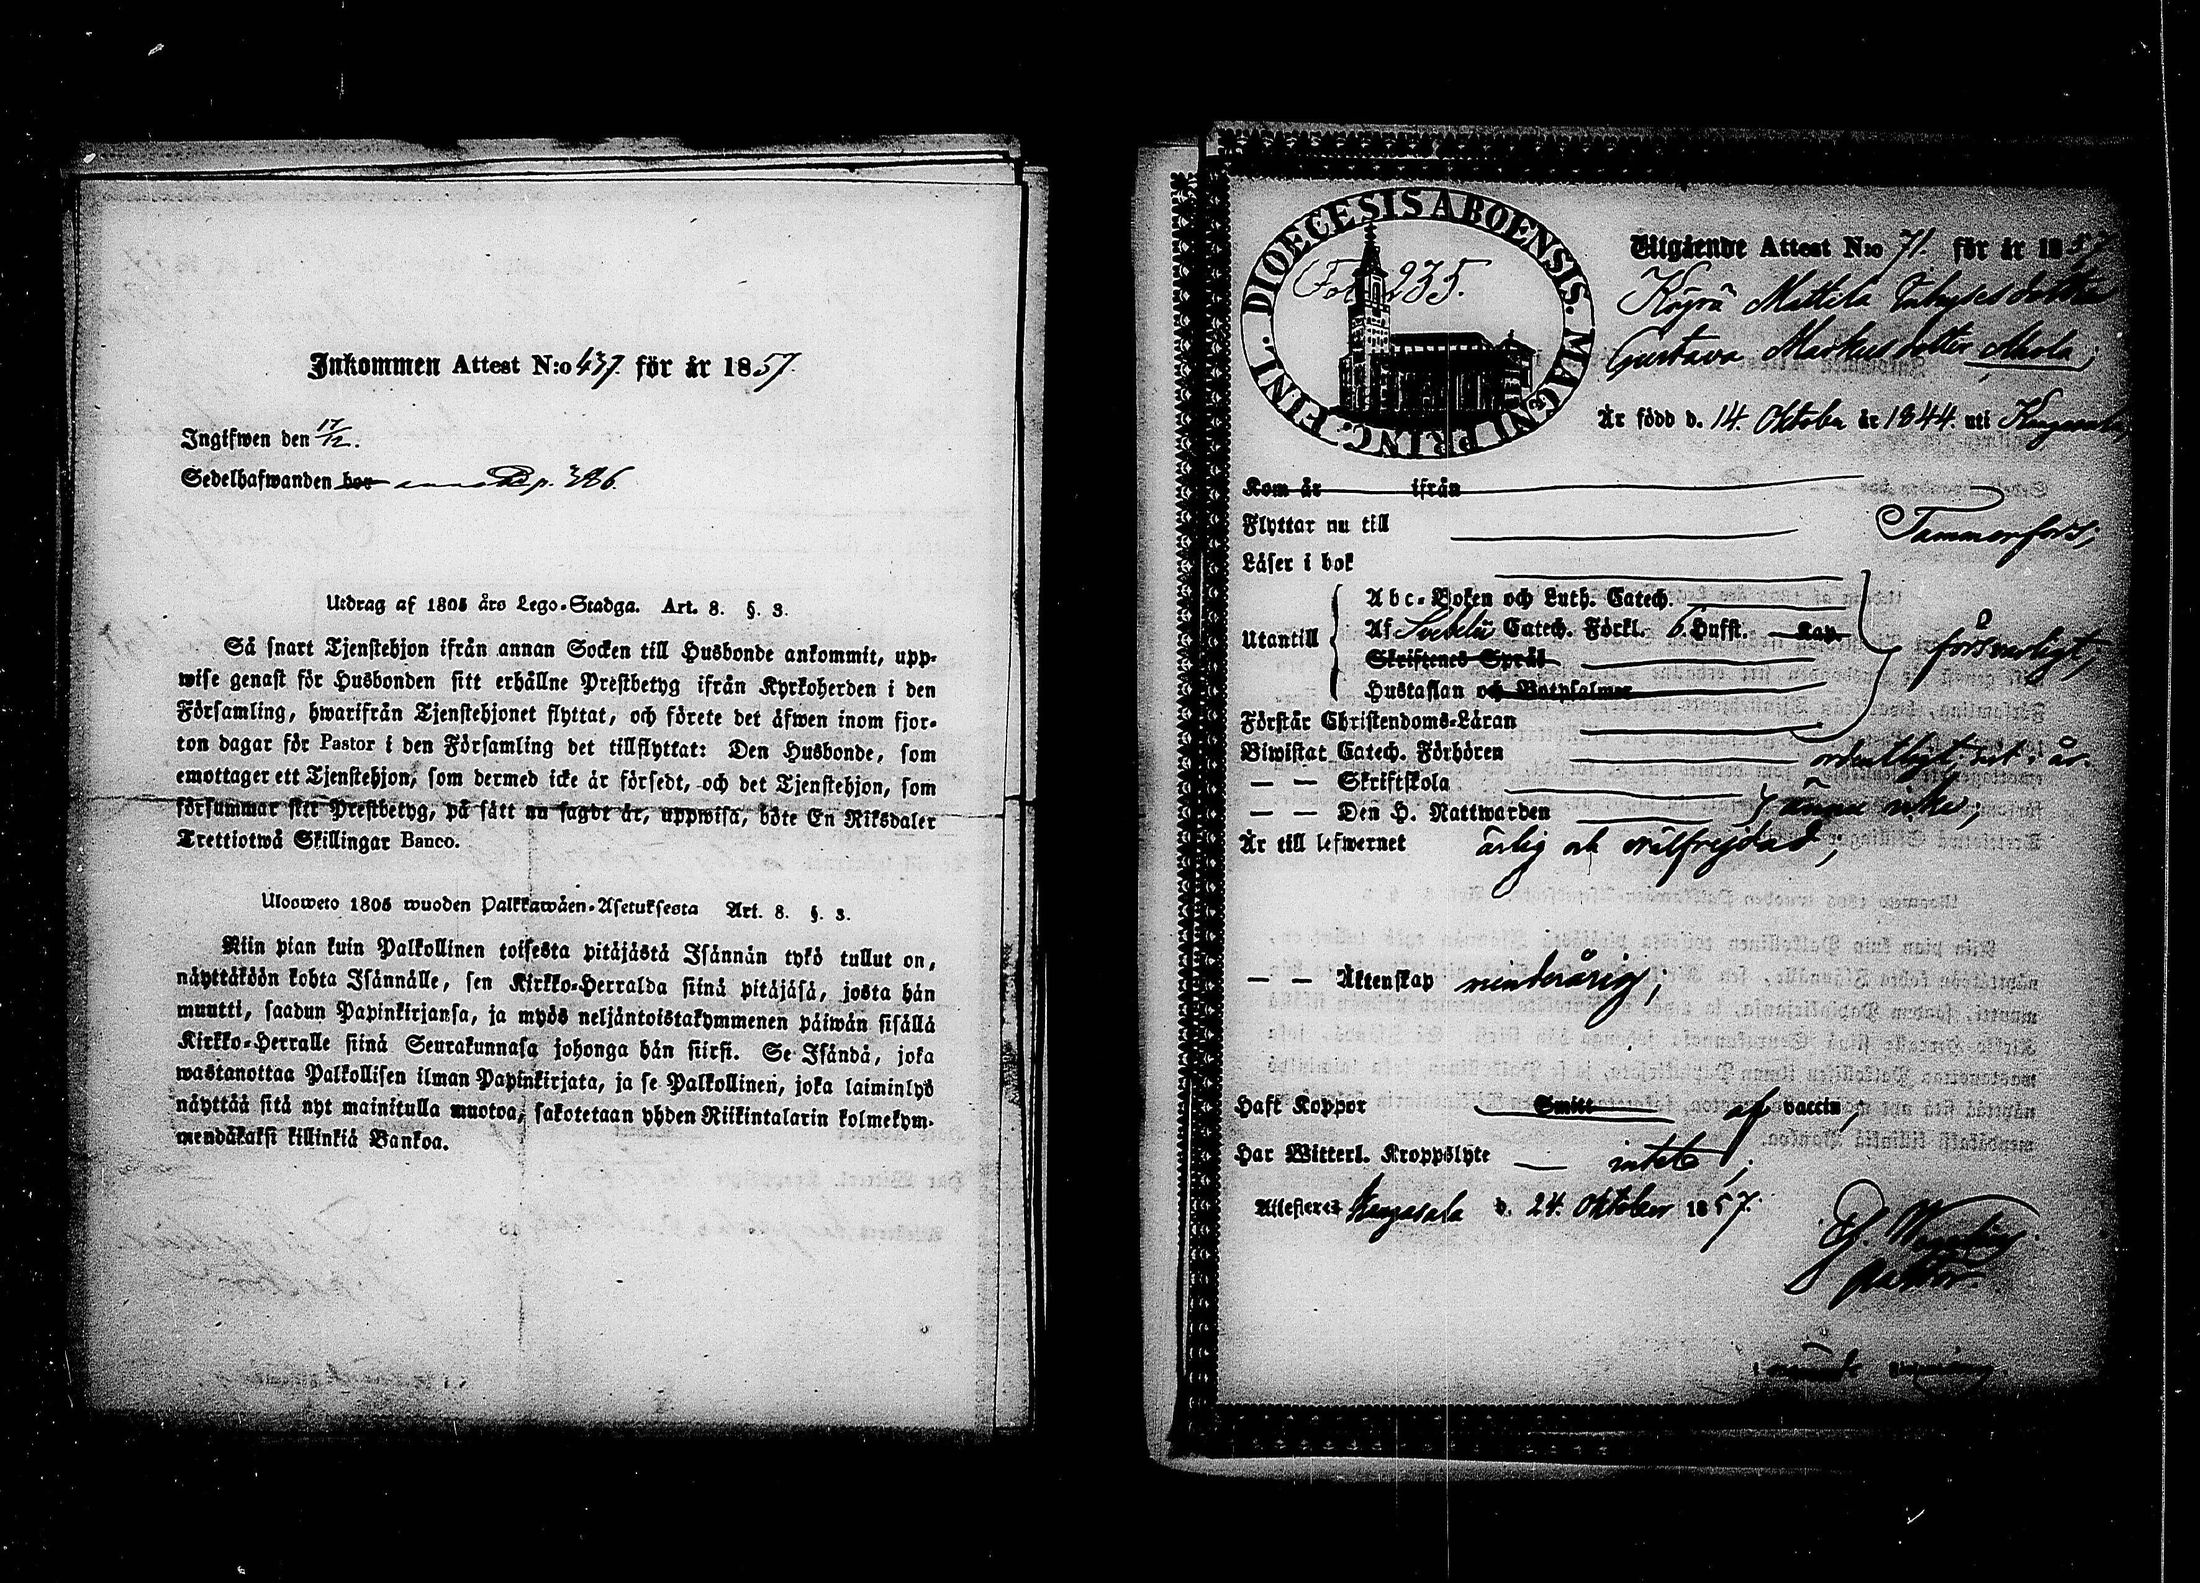 Inkommen Attest N:o 437. för år 1857.
Ingifwen den 17/12.
Sedelhafwanden bor p. 386.
Utdrag af 1805 års Lego-Stadga. Art. 8. §. 3.
Så snart Tjenstehjon ifrån annan Socken till Husbonde ankommit, upp-
wise genast för Husbonden sitt erhållne Prestbetyg ifrån Kyrkoherden i den
Församling, hwarifrån Tjenstehjonet flyttat, och förete det äfwen inom fjor-
ton dagar för Pastor i den Församling det tillflyttat: Den Husbonde, som
emottager ett Tjenstehjon, som dermed icke är försedt, och det Tjenstehjon, som
försummar sitt Prestbetyg, på sätt nu sagdt är, uppwisa, böte En Riksdaler
Trettiotwå Skillingar Banco.
Ulosweto 1805 wuoden Palkkawäen-Asetuksesta Art. 8. §. 3.
Niin pian kuin Palkollinen toisesta pitäjästä Isännän tykö tullut on,
näyttäköön kohta Isännälle, sen Kirkko-Herralda siinä pitäjäsä, josta hän
muutti, saadun Papinkirjansa, ja myös neljäntoistakymmenen päiwän sisällä
Kirkko-Herralle siinä Seurakunnasa johonga hän siirsi. Se Isändä, joka
wastanottaa Palkollisen ilman Papinkirjata, ja se Palkollinen, joka laiminlyö
näyttää sitä nyt mainitulla muotoa, sakotetaan yhden Riikintalarin kolmekym-
mendäkaksi killinkiä Bankoa.
DIOECESIS ABOENSIS. MAGNI PRINC. FINL.
Fol. 235.
Utgående Attest N:o 71. för år 1857
Köyrä Mattila
Gustava Markusdotter
Är född d. 14. Oktober år 1844. uti Kangasala
Kom år ifrån
Flyttar nu till Tammerfors;
Läser i bok
Utantill
Abc-Boken och Luth. Catech.
Af Svebelii Catech. Förkl. 6. Hufst. Kap.
Skriftenes Språk
försvarligt,
Hustaflan och Botpsalmer
Förstår Christendoms-Läran
Biwistat Catech. Förhören ordentligt, sist i år.
— — Skriftskola
— — Den H. Nattwarden ännu icke;
Är till lefwernet ärlig och välfrejdad;
— — Äktenskap minderårig;
Haft Koppor Smitt af vaccin;
Har Witterl. Kroppslyte intet;
Attesteres Kangasala d. 24. Oktober 1857.